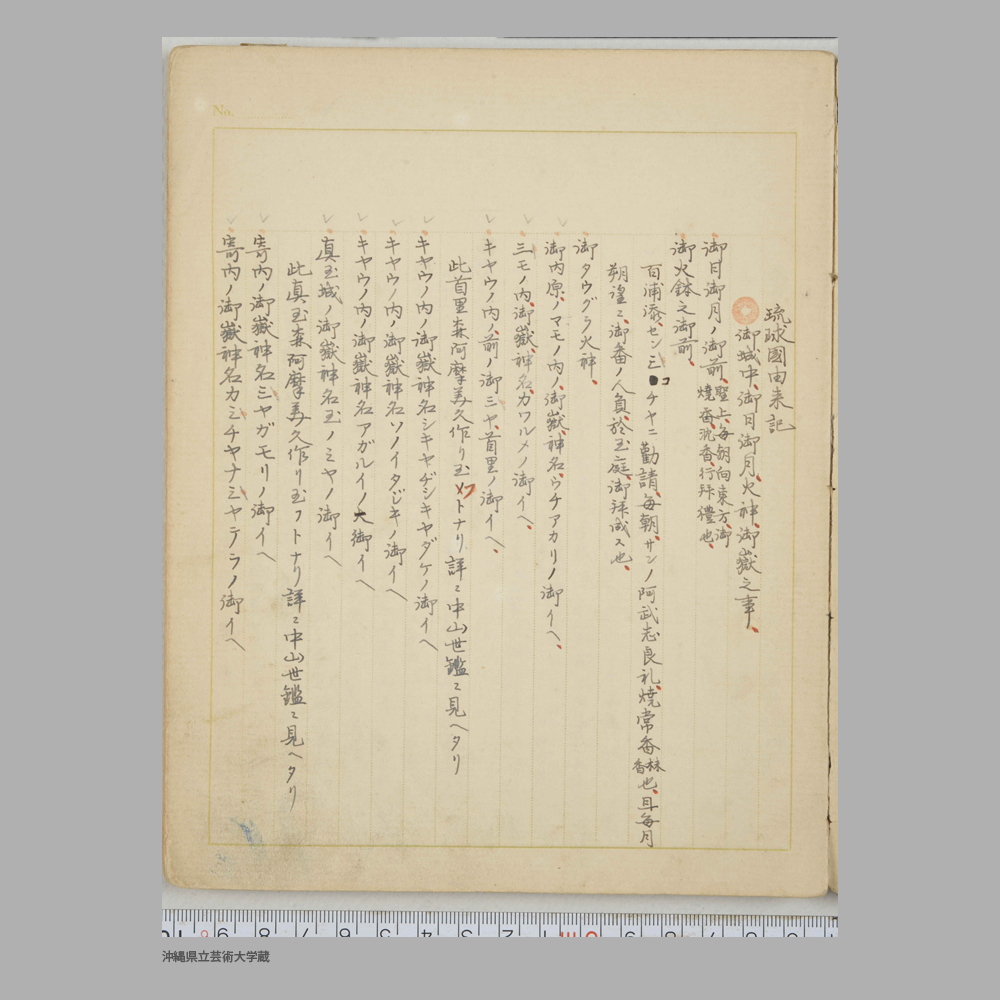 No.
琉球國由来記
御城中、御日御月、火神、御嶽之事、
御日御月ノ御前、聖上、毎朝向東方、御
焼香沈香、行拜禮也、
御火鉢之御前、
百浦添、センミコチヤニ勸請、毎朝、サンノ阿武志良礼、焼常香
香林也、且毎月
朔望ニ、御番ノ人員、於玉庭、御拝成ス也、
御タウグラ火神、
御内原ノマモノ内ノ御嶽、神名、ウチアカリノ御イヘ、
三モノ内、御嶽、神名、カワルメノ御イヘ、
キヤウノ内ノ前ノ御ミヤ、首里ノ御イヘ、
此首里森阿摩美久作リ玉フトナリ詳ニ中山世鑑ニ見ヘタリ
キヤウノ内ノ御嶽神名シキヤヂシキヤダケノ御イヘ
キヤウノ内ノ御嶽神名ソノイタジキノ御イヘ
キヤウノ内ノ御嶽神名アガルイノ大御イヘ
真玉城ノ御嶽神名玉ノミヤノ御イヘ
此真玉森阿摩美久作リ玉フトナリ詳ニ中山世鑑ニ見ヘタリ
寄内ノ御嶽神名ミヤガモリノ御イヘ
寄内ノ御嶽神名カミヂヤナミヤデラノ御イヘ
沖縄県立芸術大学蔵